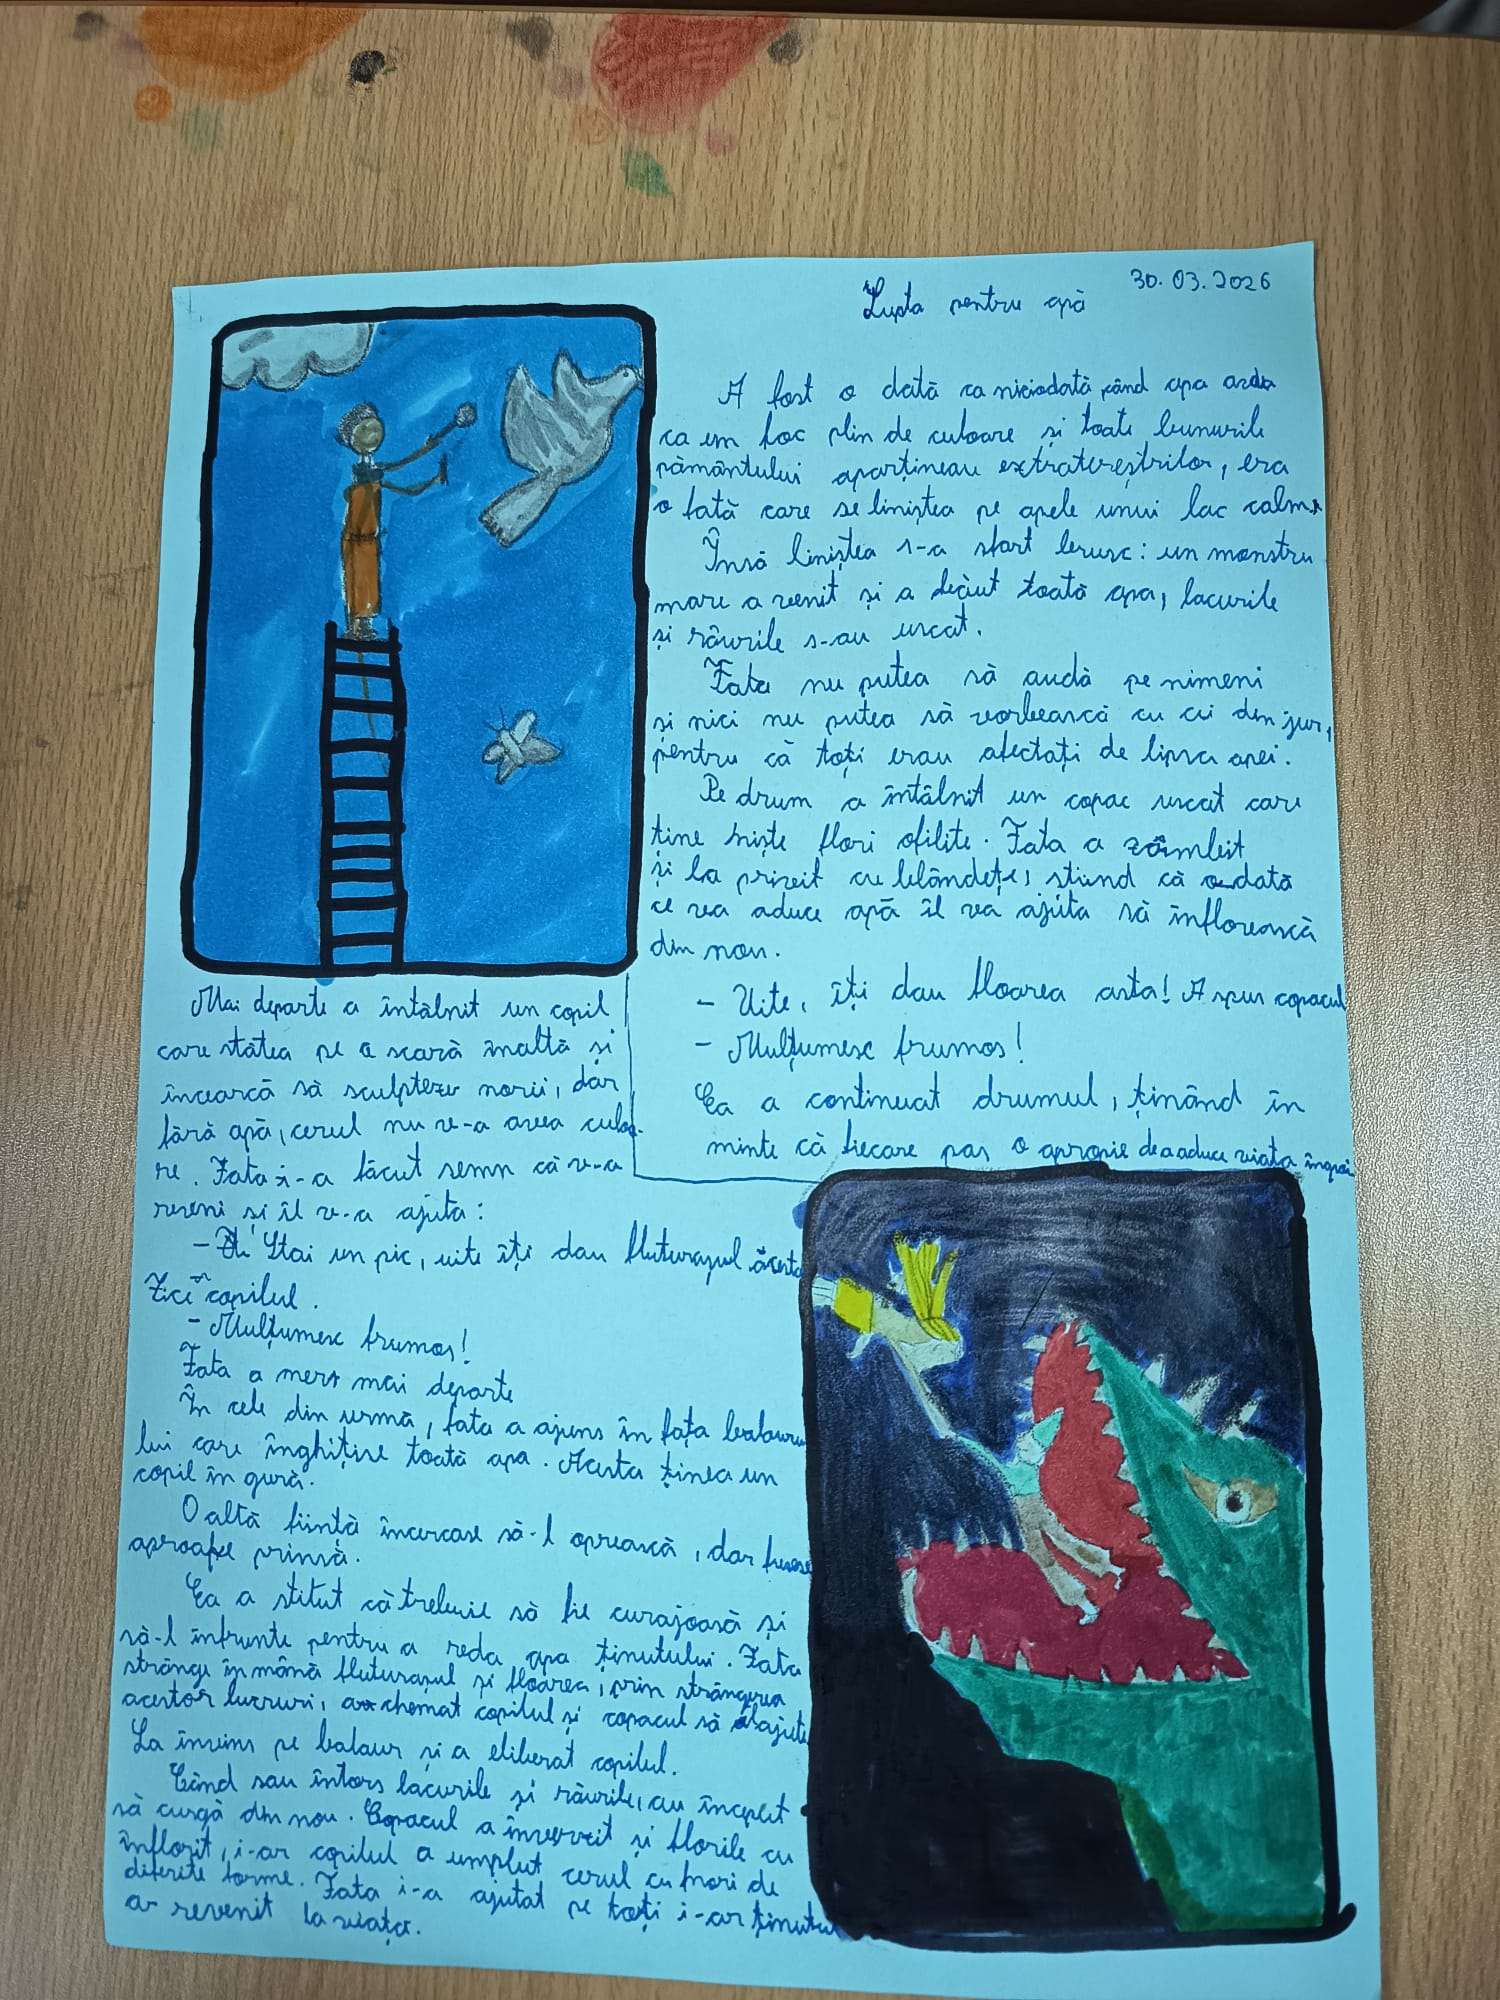 30.03.2026
Lupta pentru apă
A fost o dată ca niciodată, când apa ardea
ca un foc plin de culoare și toate bunurile
pământului aparțineau extratereștrilor, era
o fată care se liniștea pe apele unui lac calm.
Însă liniștea s-a sfart brusc: un monstru
mare a venit și a băut toată apa, lacurile
și râurile s-au uscat.
Fata nu putea să audă pe nimeni
și nici nu putea să vorbească cu cei din jur,
pentru că toți erau afectați de lipsa apei.
Pe drum a întâlnit un copac uscat care
ține niște flori ofilite. Fata a zâmbit
și la privit cu blândețe, stiind că odată
ce va aduce apă îl va ajuta să înflorească
din nou.
- Uite, îți dau floarea asta! A spus copacul
- Mulțumesc frumos!
Ea a continuat drumul, ținând în
minte că fiecare pas o apropie de a aduce viata înapoi
Mai departe a întâlnit un copil
care stătea pe o scară înaltă și
încearcă să sculpteze norii, dar
fără apă, cerul nu v-a avea culoa-
re. Fata i-a făcut semn că v-a
reveni și îl v-a ajuta:
- Stai un pic, uite îți dau fluturașul ăsta
Zici copilul.
- Mulțumesc frumos!
Fata a mers mai departe
În cele din urmă, fata a ajuns în fața balauru
lui care înghițise toată apa. Acesta ținea un
copil în gură.
O altă ființă încercase să-l oprească, dar fusese
aproape prinsă.
Ea a stiut că trebuie să fie curajoasă și
să-l înfrunte pentru a reda apa ținutului. Fata
strânge în mână fluturașul și floarea, prin strângerea
acestor lucruri, a chemat copilul și copacul să ajute
La învins pe balaur și a eliberat copilul.
Când sau întors lacurile și râurile, au început
să curgă din nou. Copacul a înverzit și florile au
înflorit, i-ar copilul a umplut cerul cu nori de
diferite forme. Fata i-a ajutat pe toți i-ar ținutul
a revenit la viața.